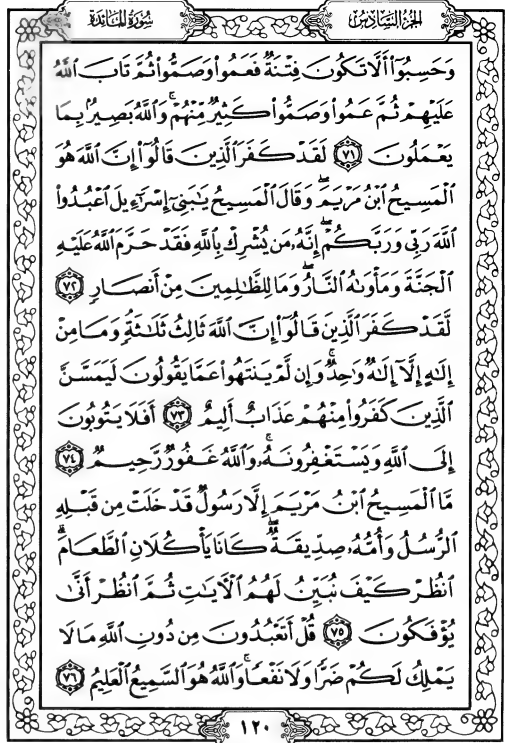 سُورَةُ المَائِدَة
الجُزْءُ السَّادِسُ
وَحَسِبُوٓا۟ أَلَّا تَكُونَ فِتْنَةٌ فَعَمُوا۟ وَصَمُّوا۟ ثُمَّ تَابَ ٱللَّهُ
عَلَيْهِمْ ثُمَّ عَمُوا۟ وَصَمُّوا۟ كَثِيرٌ مِّنْهُمْ ۚ وَٱللَّهُ بَصِيرٌۢ بِمَا
يَعْمَلُونَ ٧١ لَقَدْ كَفَرَ ٱلَّذِينَ قَالُوٓا۟ إِنَّ ٱللَّهَ هُوَ
ٱلْمَسِيحُ ٱبْنُ مَرْيَمَ ۖ وَقَالَ ٱلْمَسِيحُ يَـٰبَنِىٓ إِسْرَٰٓءِيلَ ٱعْبُدُوا۟
ٱللَّهَ رَبِّى وَرَبَّكُمْ ۖ إِنَّهُۥ مَن يُشْرِكْ بِٱللَّهِ فَقَدْ حَرَّمَ ٱللَّهُ عَلَيْهِ
ٱلْجَنَّةَ وَمَأْوَىٰهُ ٱلنَّارُ ۖ وَمَا لِلظَّـٰلِمِينَ مِنْ أَنصَارٍ ٧٢
لَّقَدْ كَفَرَ ٱلَّذِينَ قَالُوٓا۟ إِنَّ ٱللَّهَ ثَالِثُ ثَلَـٰثَةٍ ۘ وَمَا مِنْ
إِلَـٰهٍ إِلَّآ إِلَـٰهٌ وَٰحِدٌ ۚ وَإِن لَّمْ يَنتَهُوا۟ عَمَّا يَقُولُونَ لَيَمَسَّنَّ
ٱلَّذِينَ كَفَرُوا۟ مِنْهُمْ عَذَابٌ أَلِيمٌ ٧٣ أَفَلَا يَتُوبُونَ
إِلَى ٱللَّهِ وَيَسْتَغْفِرُونَهُۥ ۚ وَٱللَّهُ غَفُورٌ رَّحِيمٌ ٧٤
مَّا ٱلْمَسِيحُ ٱبْنُ مَرْيَمَ إِلَّا رَسُولٌ قَدْ خَلَتْ مِن قَبْلِهِ
ٱلرُّسُلُ وَأُمُّهُۥ صِدِّيقَةٌ ۖ كَانَا يَأْكُلَانِ ٱلطَّعَامَ ۗ
ٱنظُرْ كَيْفَ نُبَيِّنُ لَهُمُ ٱلْـَٔايَـٰتِ ثُمَّ ٱنظُرْ أَنَّىٰ
يُؤْفَكُونَ ٧٥ قُلْ أَتَعْبُدُونَ مِن دُونِ ٱللَّهِ مَا لَا
يَمْلِكُ لَكُمْ ضَرًّا وَلَا نَفْعًا ۚ وَٱللَّهُ هُوَ ٱلسَّمِيعُ ٱلْعَلِيمُ ٧٦
١٢٠